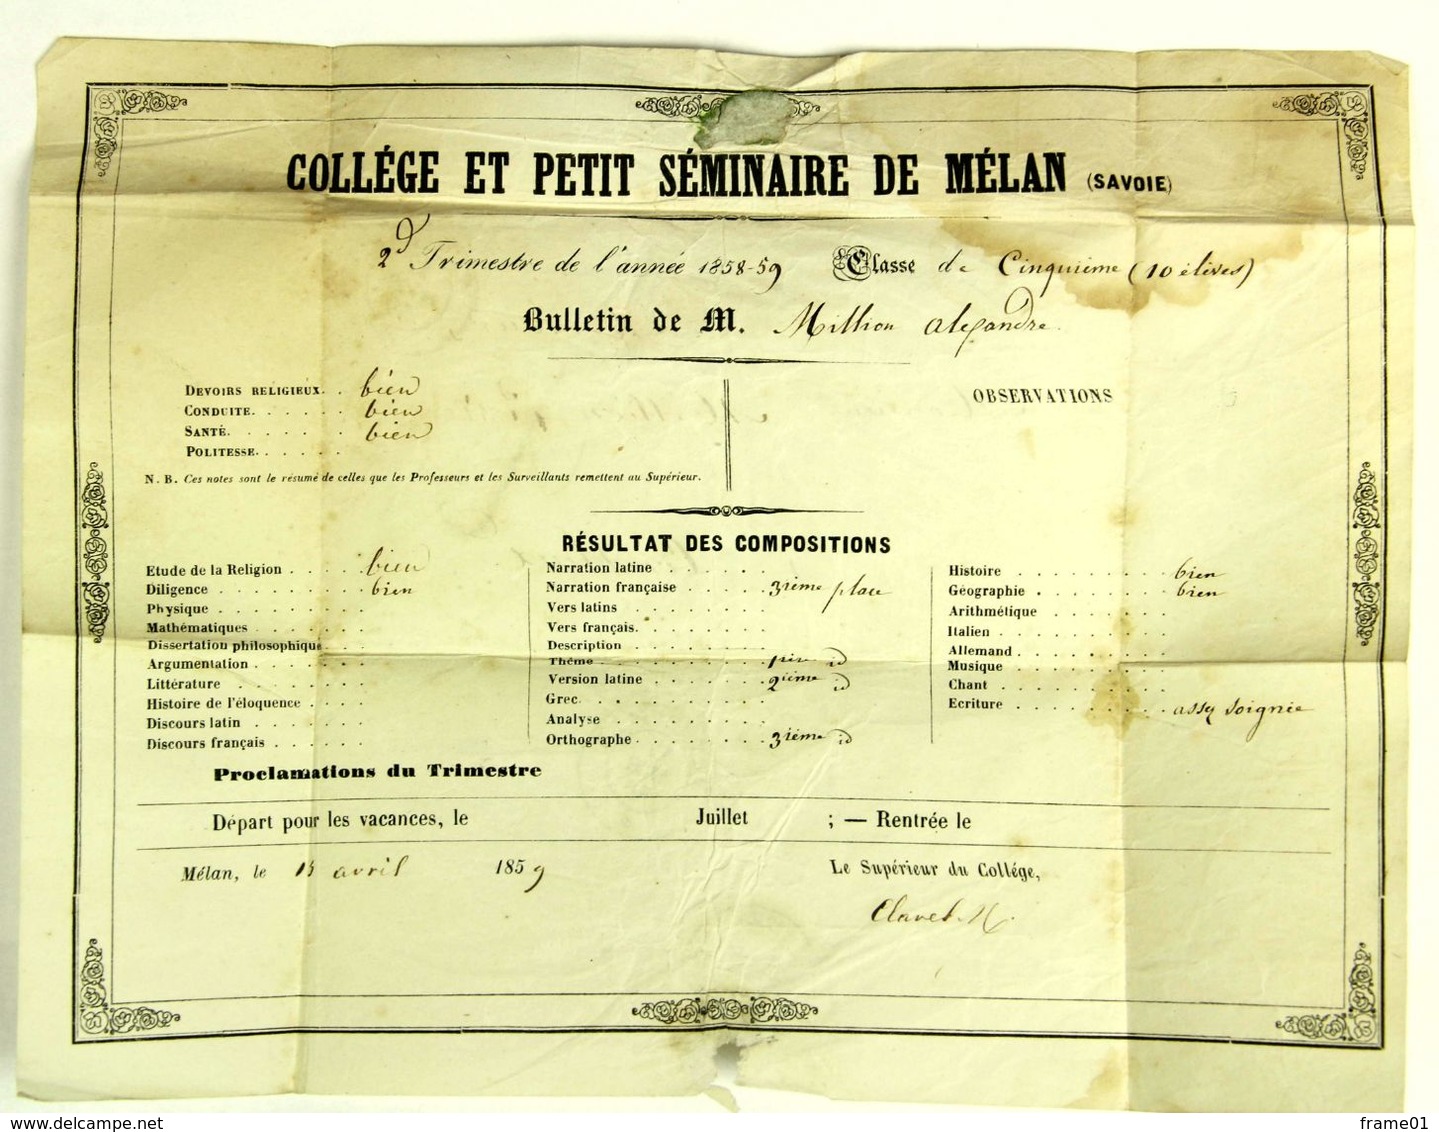 COLLÉGE ET PETIT SÉMINAIRE DE MÉLAN (SAVOIE)
2d Trimestre de l'année 1858-59 Classe de Cinquième (10 élèves)
Bulletin de M. Million alexandre
DEVOIRS RELIGIEUX. . bien
CONDUITE. . . . . . bien
SANTÉ. . . . . . . bien
POLITESSE. . . . . .
OBSERVATIONS
N. B. Ces notes sont le résumé de celles que les Professeurs et les Surveillants remettent au Supérieur.
RÉSULTAT DES COMPOSITIONS
Etude de la Religion . . . . bien
Diligence . . . . . . . . . bien
Physique . . . . . . . . .
Mathématiques . . . . . . .
Dissertation philosophique . . .
Argumentation . . . . . . .
Littérature . . . . . . .
Histoire de l'éloquence . . . .
Discours latin . . . . . . .
Discours français . . . . . .
Narration latine . . . . . .
Narration française . . . . . 3ième place
Vers latins . . . . . . . .
Vers français. . . . . . . .
Description . . . . . . . .
Thême . . . . . . . . . 1ière id
Version latine . . . . . . 2ième id
Grec. . . . . . . . . .
Analyse . . . . . . . .
Orthographe . . . . . . . 3ième id
Histoire . . . . . . . . bien
Géographie . . . . . . . bien
Arithmélique . . . . . . .
Italien . . . . . . . . .
Allemand . . . . . . . .
Musique . . . . . . . .
Chant . . . . . . . . .
Ecriture . . . . . . . . assez soignée
Proclamations du Trimestre
Départ pour les vacances, le Juillet ; — Rentrée le
Mélan, le avril 1859
Le Supérieur du Collége,
Clavel
frame01